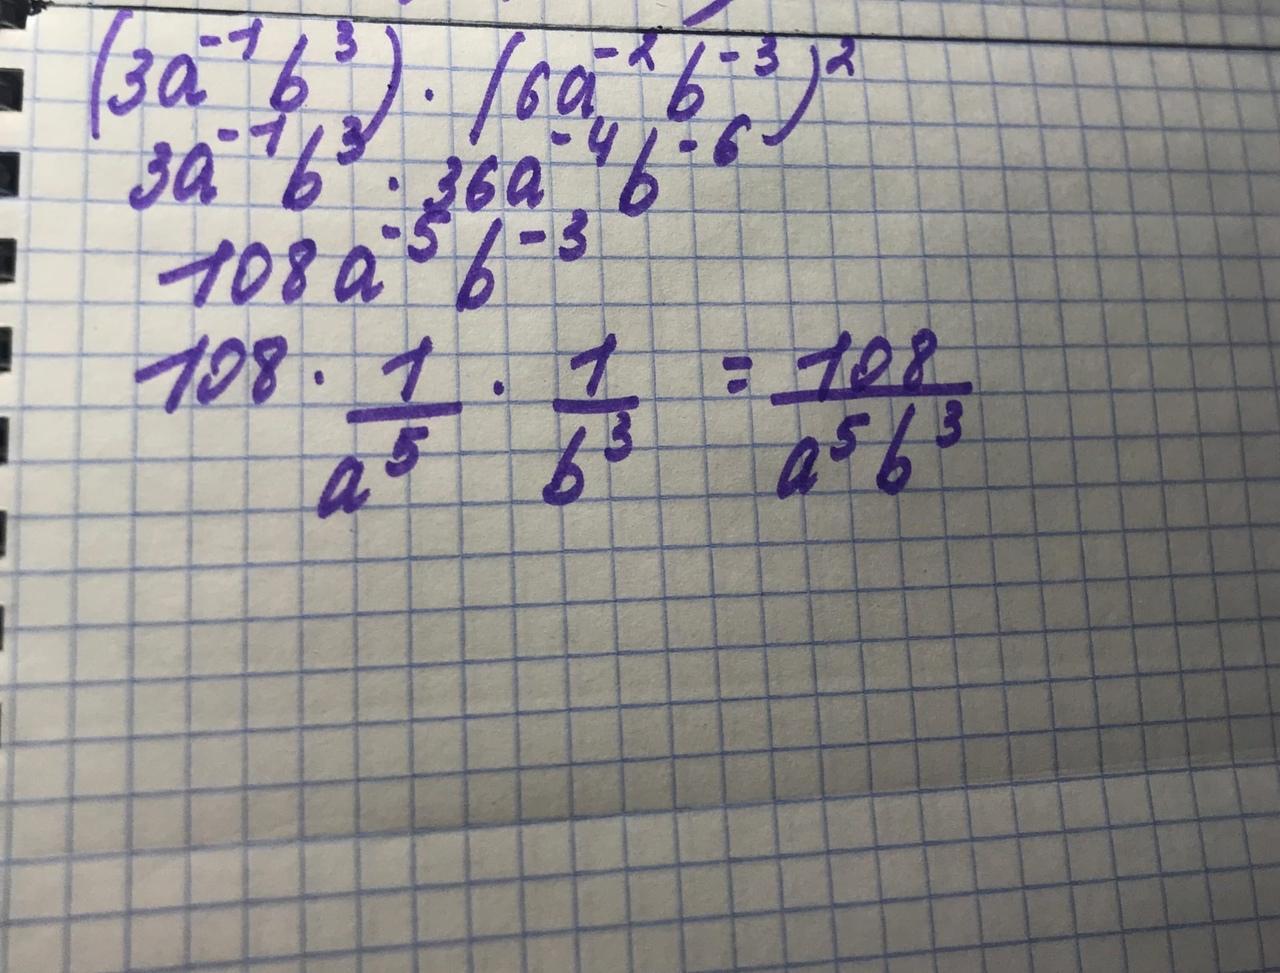 (3a⁻¹b³) · (6a⁻²b⁻³)²
3a⁻¹b³ · 36a⁻⁴b⁻⁶
108a⁻⁵b⁻³
108 · 1/a⁵ · 1/b³ = 108/a⁵b³